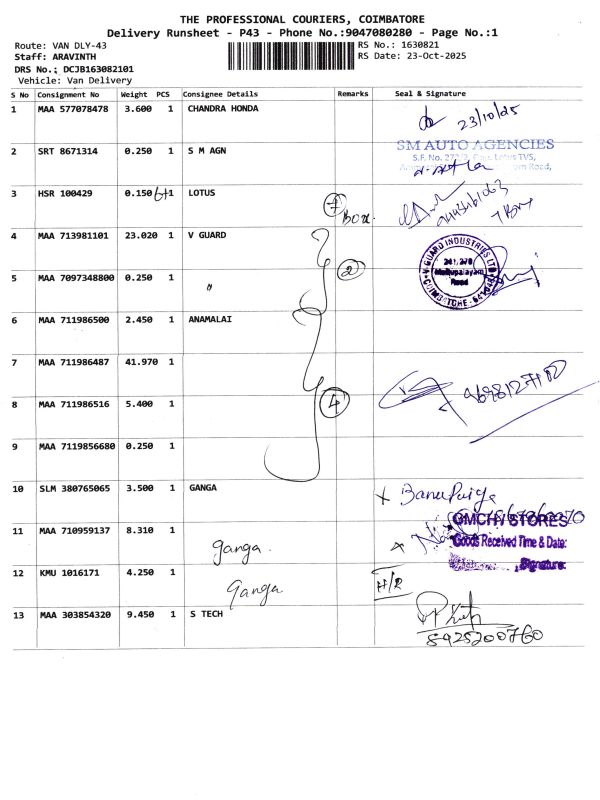 THE PROFESSIONAL COURIERS, COIMBATORE
Delivery Runsheet - P43 - Phone No.:9047080280 - Page No.:1
Route: VAN DLY-43
Staff: ARAVINTH
DRS No.: DCJB163082101
Vehicle: Van Delivery
RS No.: 1630821
RS Date: 23-Oct-2025
S No Consignment No Weight PCS Consignee Details Remarks Seal & Signature
1 MAA 577078478 3.600 1 CHANDRA HONDA 23/10/25
2 SRT 8671314 0.250 1 S M AGN
SM AUTO AGENCIES
S.F. No. Lotus TVS,
Road,
3 HSR 100429 0.150 6+1 LOTUS 7 Box
4 MAA 713981101 23.020 1 V GUARD
V GUARD INDUSTRIES LTD
241,276
Mettupalayam
Road
5 MAA 7097348800 0.250 1 " 2
6 MAA 711986500 2.450 1 ANAMALAI
7 MAA 711986487 41.970 1
8 MAA 711986516 5.400 1 4
9 MAA 7119856680 0.250 1
10 SLM 380765065 3.500 1 GANGA
GMCH/STORES
11 MAA 710959137 8.310 1 ganga
Goods Received Time & Date:
Signature:
12 KMU 1016171 4.250 1 ganga
13 MAA 303854320 9.450 1 S TECH
8925200760